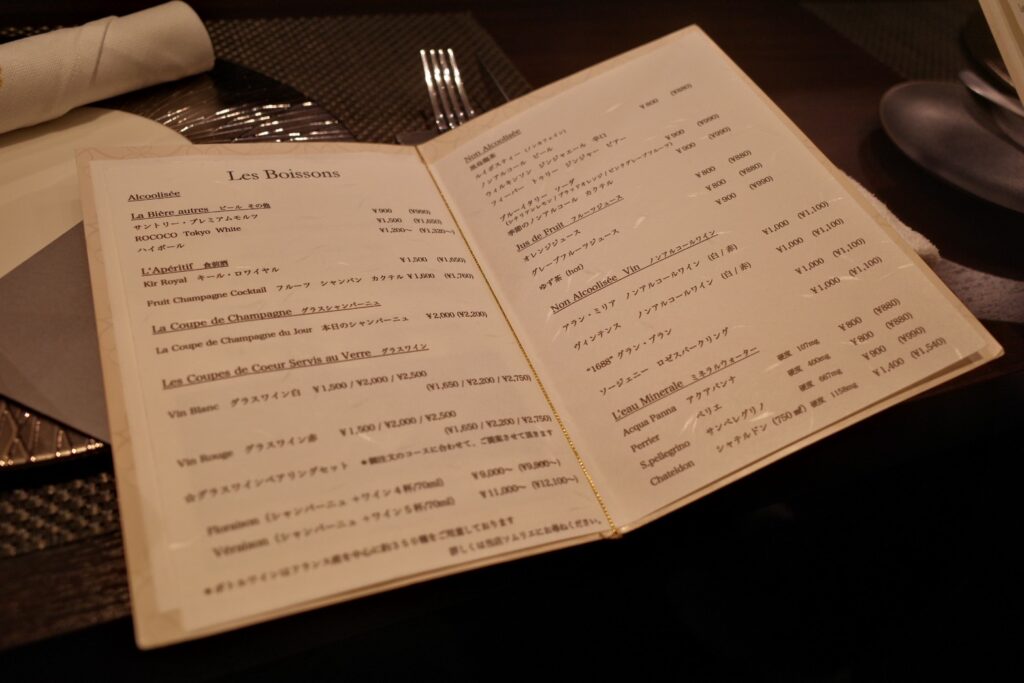 Les Boissons
Alcoolisée
La Bière autres ビール その他
サントリー・プレミアムモルツ ¥900 (¥990)
ROCOCO Tokyo White ¥1,500 (¥1,650)
ハイボール ¥1,200～ (¥1,320～)
L'Apéritif 食前酒
Kir Royal キール・ロワイヤル ¥1,500 (¥1,650)
Fruit Champagne Cocktail フルーツ シャンパン カクテル ¥1,600 (¥1,760)
La Coupe de Champagne グラスシャンパーニュ
La Coupe de Champagne du Jour 本日のシャンパーニュ ¥2,000 (¥2,200)
Les Coupes de Coeur Servis au Verre グラスワイン
Vin Blanc グラスワイン白 ¥1,500 / ¥2,000 / ¥2,500
(¥1,650 / ¥2,200 / ¥2,750)
Vin Rouge グラスワイン赤 ¥1,500 / ¥2,000 / ¥2,500
(¥1,650 / ¥2,200 / ¥2,750)
☆グラスワインペアリングセット ＊御注文のコースに合わせて、ご提案させて頂きます
Floraison (シャンパーニュ +ワイン4杯/70ml) ¥9,000～ (¥9,900～)
Véraison (シャンパーニュ +ワイン5杯/70ml) ¥11,000～ (¥12,100～)
＊ボトルワインはフランス産を中心に約350種をご用意しております
詳しくは当店ソムリエにお尋ねください。
Non Alcoolisée
¥800 (¥880)
ルイボスティー (ノンカフェイン)
ノンアルコール ビール ¥900 (¥990)
ウィルキンソン ジンジャエール 辛口
フィーバー トゥリー ジンジャー ビアー ¥900 (¥990)
ブルーイタリー ソーダ
(シチリアンレモン / ブラッドオレンジ / ピンクグレープフルーツ) ¥800 (¥880)
季節のノンアルコール カクテル
Jus de Fruit フルーツジュース
オレンジジュース ¥800 (¥880)
グレープフルーツジュース
ゆず茶 (hot) ¥900 (¥990)
Non Alcoolisée Vin ノンアルコールワイン
アラン・ミリア ノンアルコールワイン (白 / 赤) ¥1,000 (¥1,100)
ヴィンテンス ノンアルコールワイン (白 / 赤) ¥1,000 (¥1,100)
"1688" グラン・ブラン ¥1,000 (¥1,100)
ソージェニー ロゼスパークリング ¥1,000 (¥1,100)
L'eau Minerale ミネラルウォーター
Acqua Panna アクアパンナ 硬度 107mg ¥800 (¥880)
Perrier ペリエ 硬度 400mg ¥800 (¥880)
S.pellegrino サンペレグリノ 硬度 667mg ¥900 (¥990)
Chateldon シャテルドン (750 ml) 硬度 1158mg ¥1,400 (¥1,540)